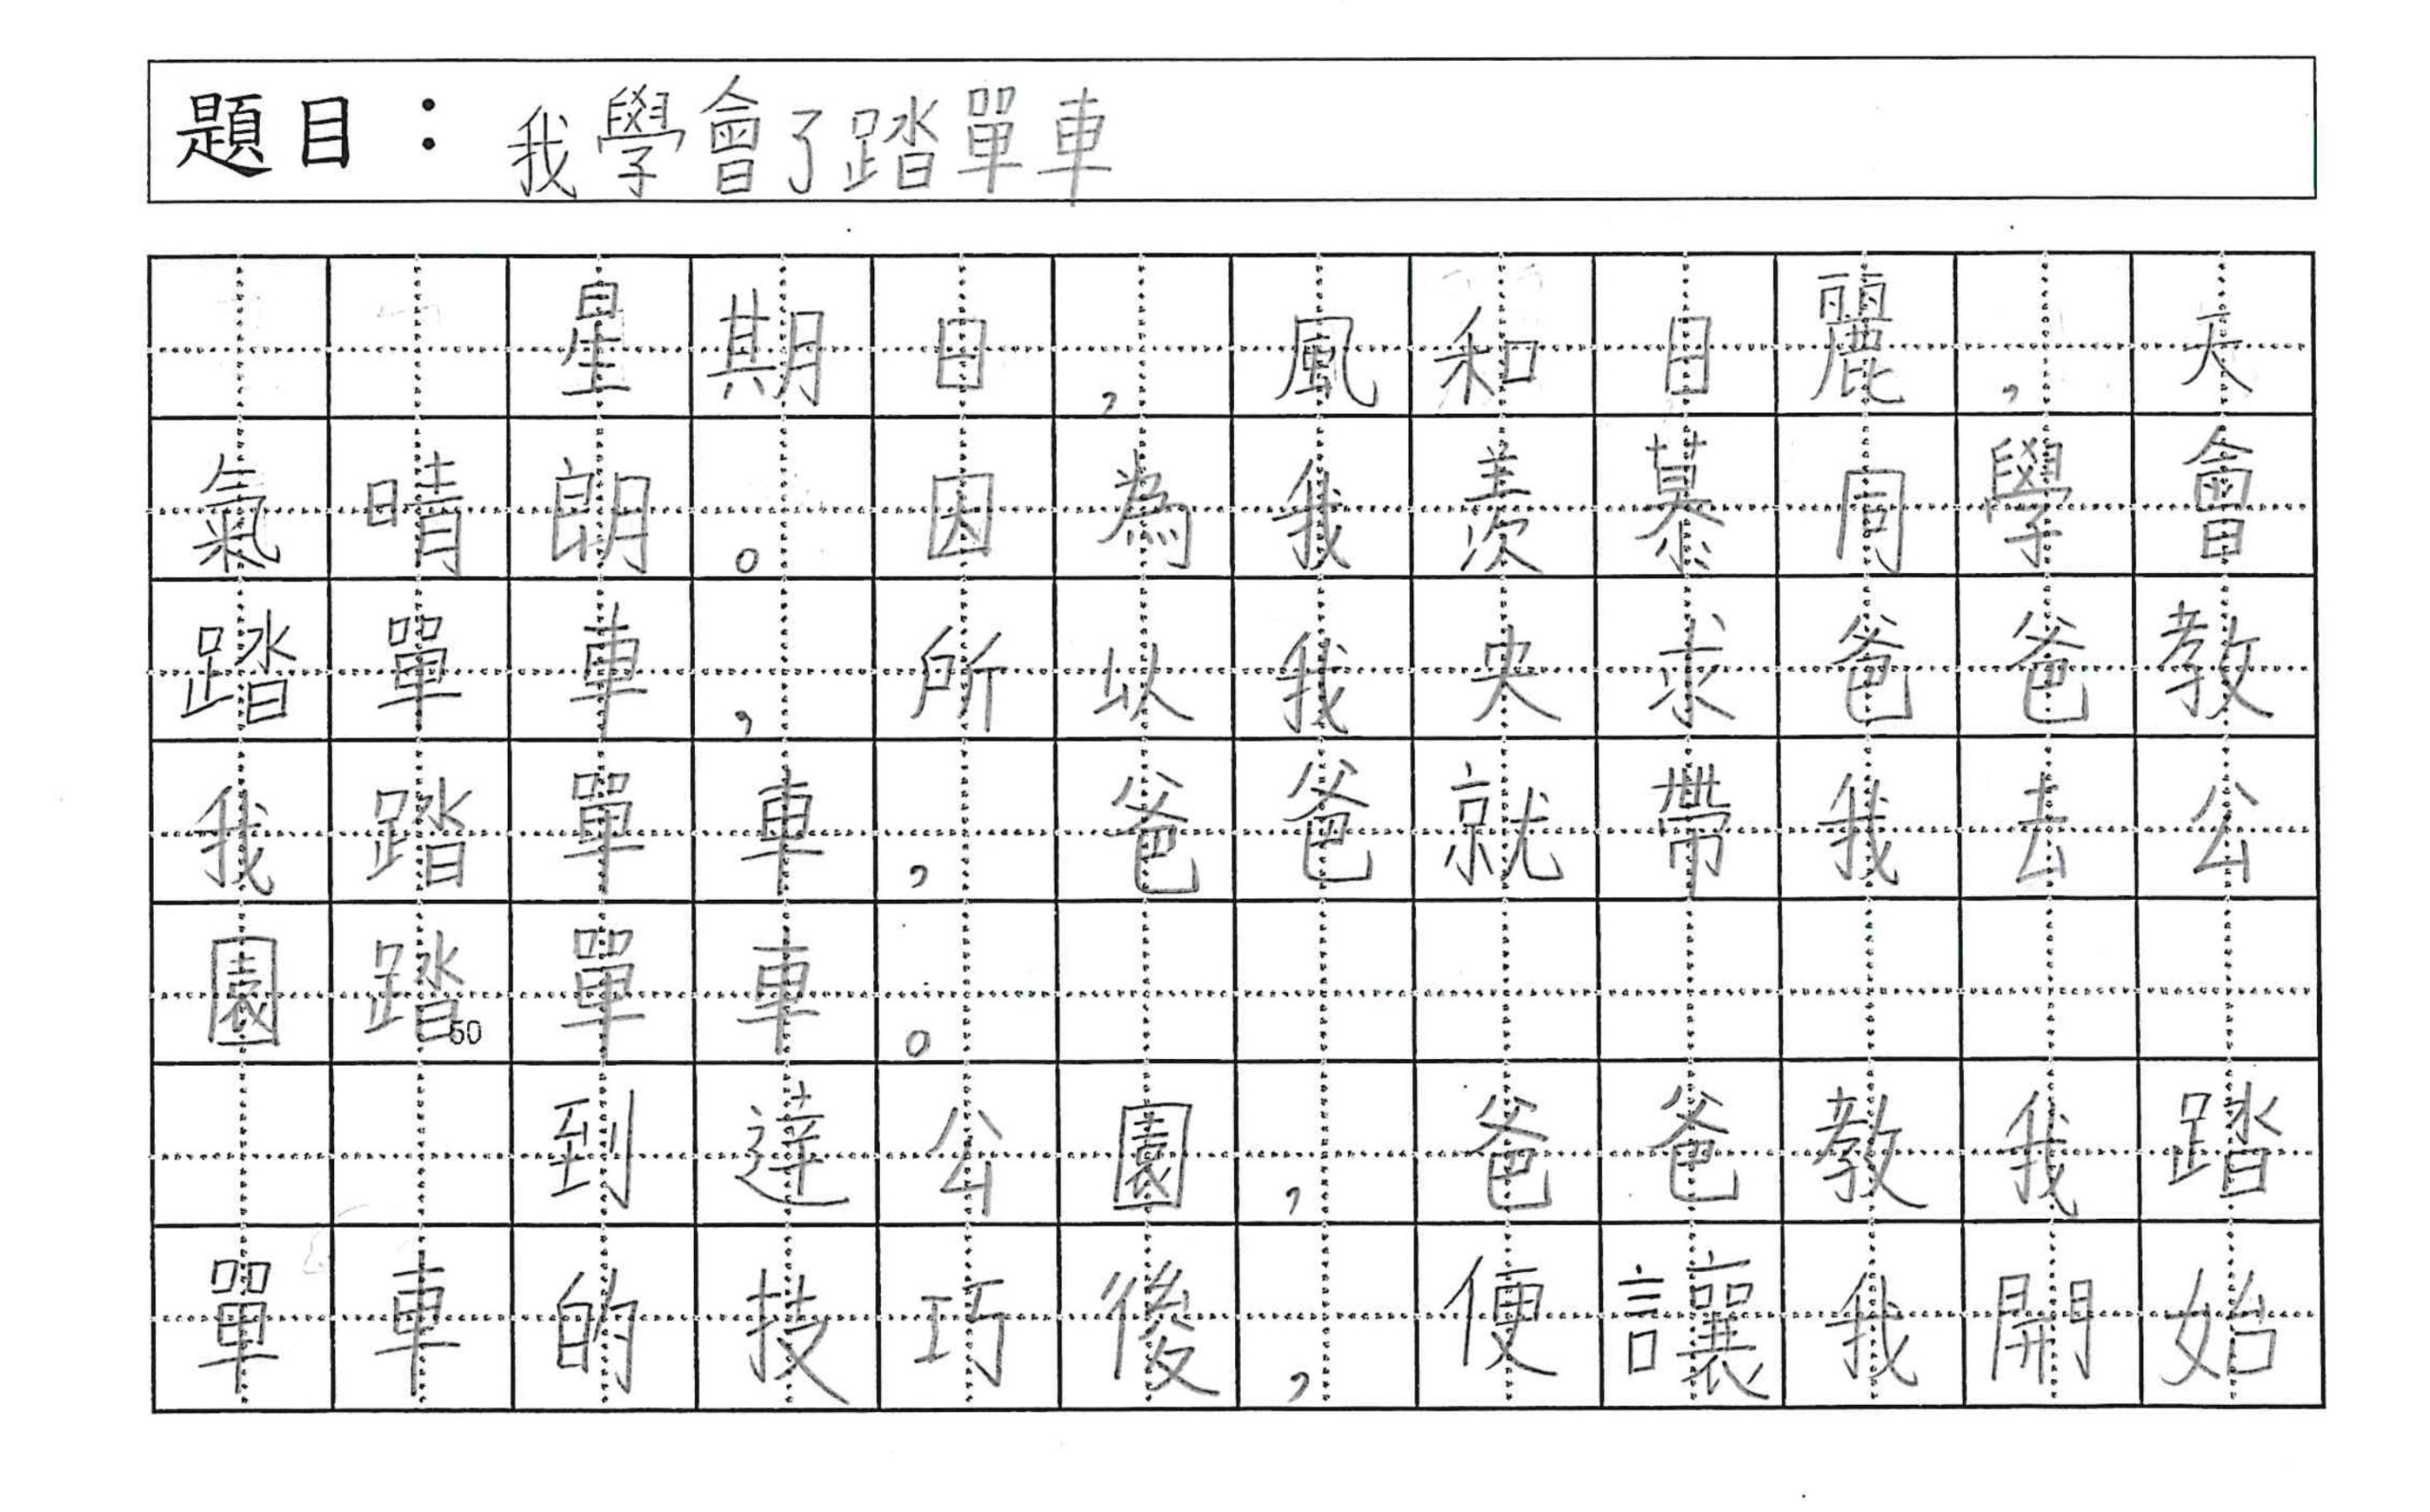 題目：我學會了踏單車
星期日，風和日麗，天
氣晴朗。因為我羨慕同學會
踏單車，所以我央求爸爸教
我踏單車，爸爸就帶我去公
園踏單車。
50
到達公園，爸爸教我踏
單車的技巧後，便讓我開始